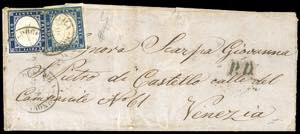 Signora Scarpa Giovanna
S. Pietro di Castello calle del
Campanile No 61
Venezia
P.D.